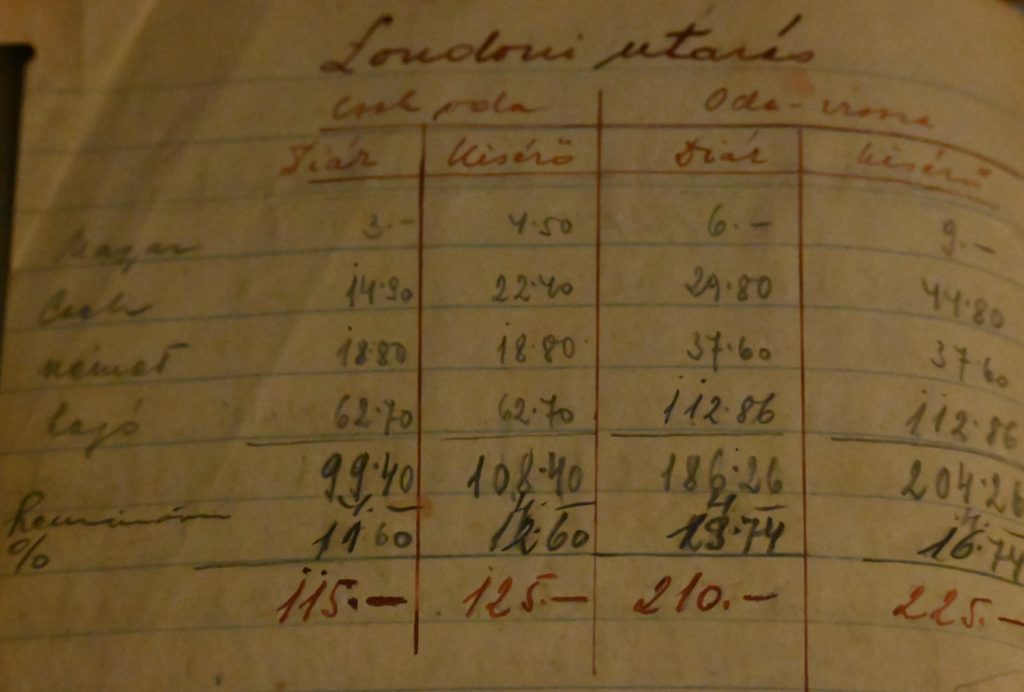 Londoni utazás
Csak oda Oda-vissza
Diák Kisérő Diák Kisérő
Magyar 3.— 4.50 6.— 9.—
Cseh 14.90 22.40 29.80 44.80
német 18.80 18.80 37.60 37.60
hajó 62.70 62.70 112.86 112.86
99.40 108.40 186.26 204.26
4.— 4.— 4.— 4.—
% 11.60 12.60 19.74 16.74
115.— 125.— 210.— 225.—